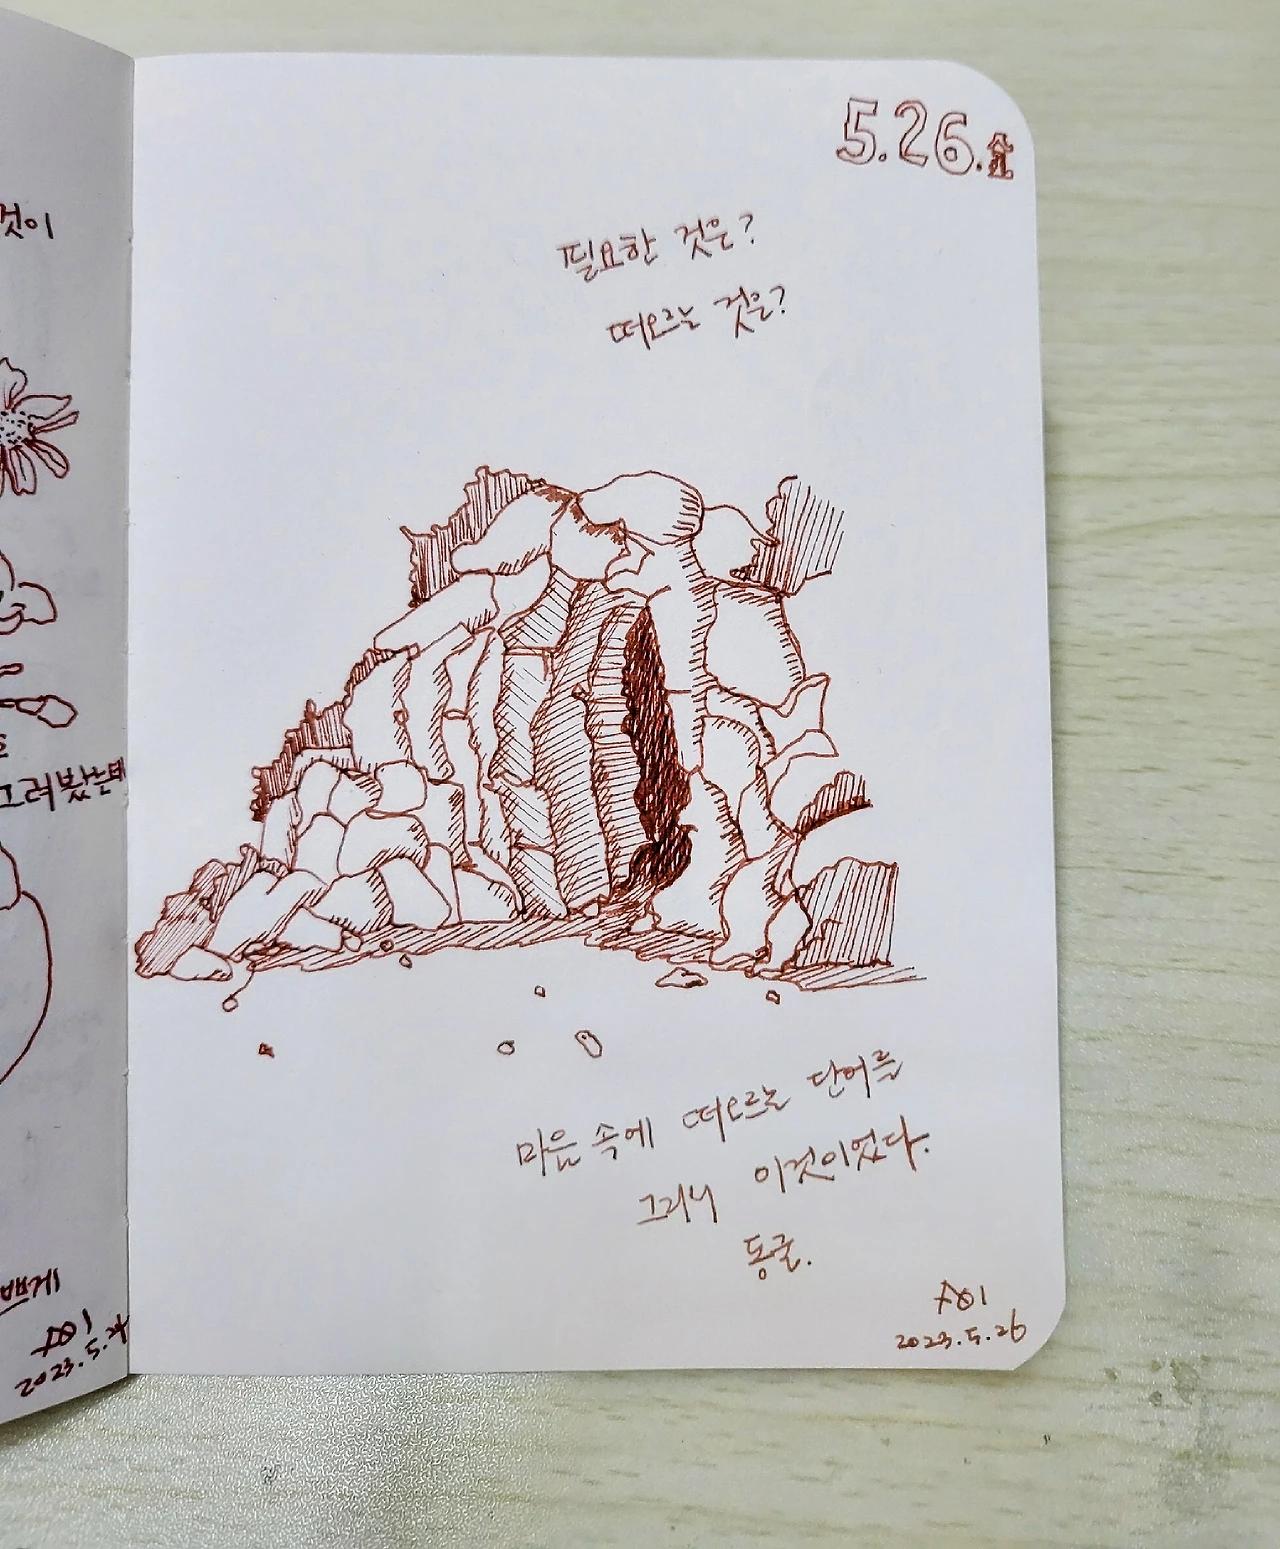 것이
그려봤는데
2023.5.24
5.26.金
필요한 것은?
떠오르는 것은?
마음 속에 떠오르는 단어를
그리니 이것이었다.
동굴.
2023.5.26